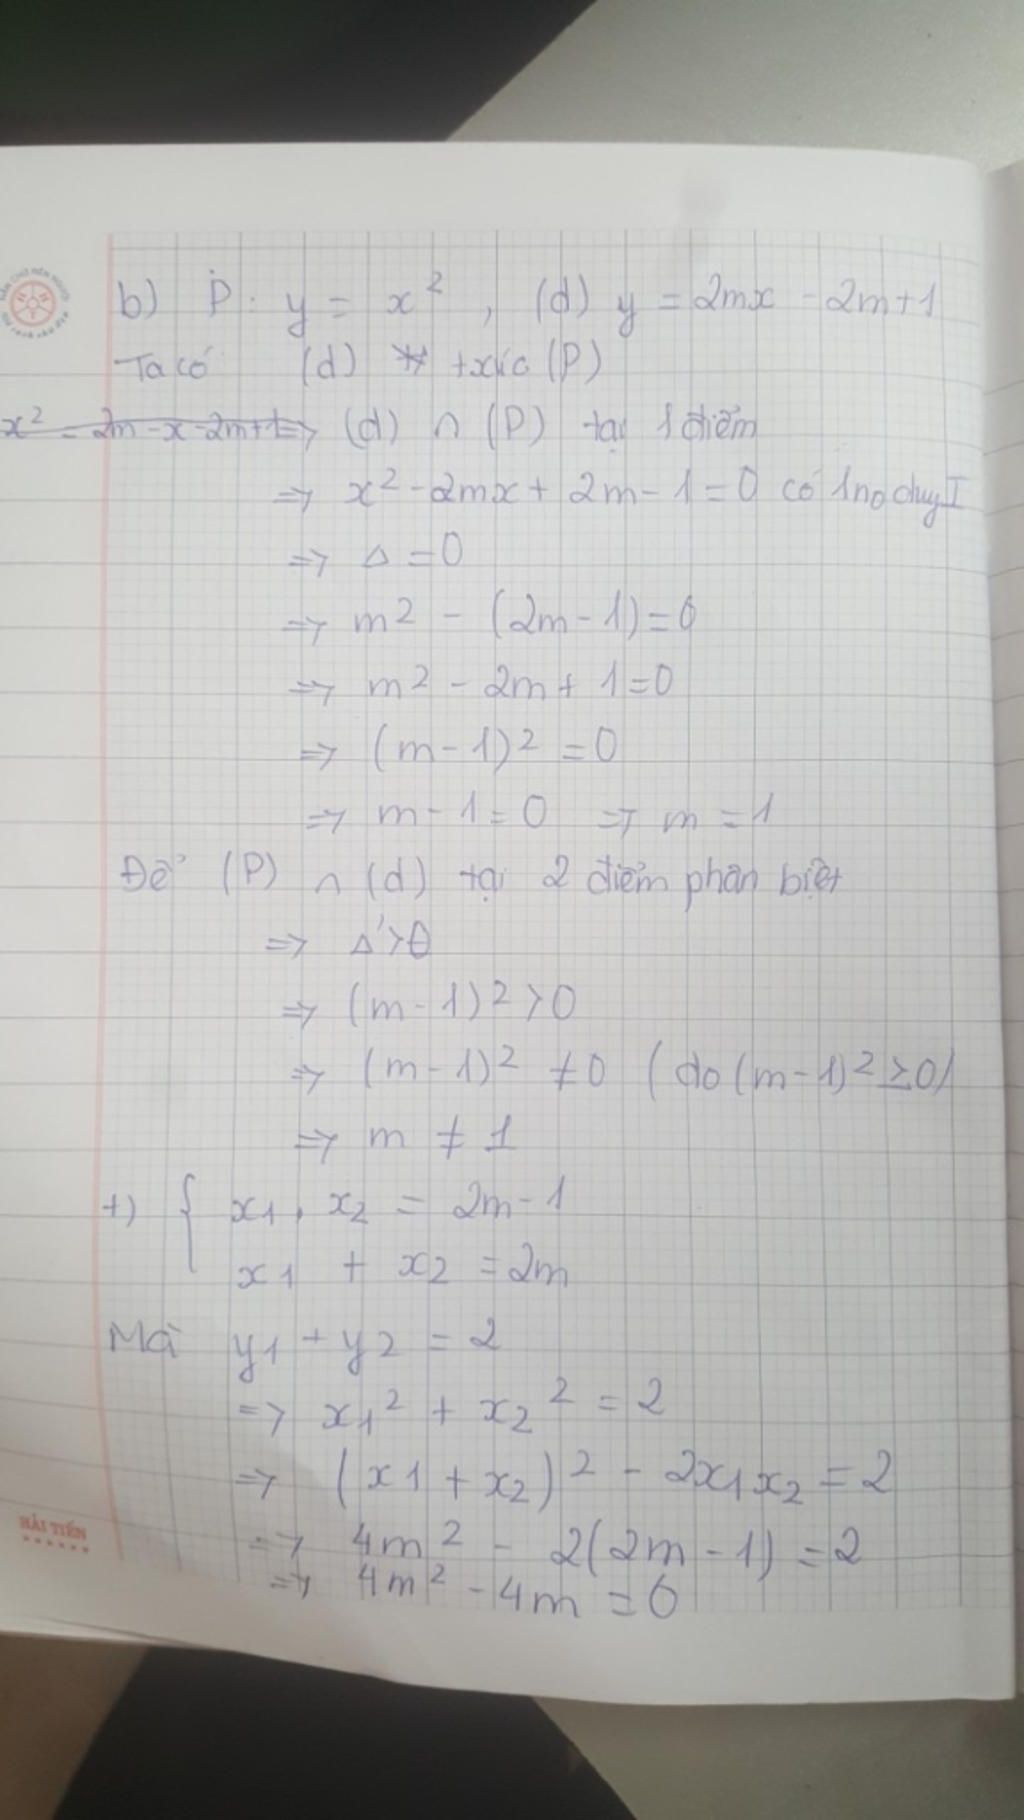 b) P: y = x², (d) y = 2mx - 2m+1
Ta có (d) txúc (P)
x² - 2m-x-2m+1 => (d) ∩ (P) tại 1 điểm
=> x² - 2mx + 2m - 1 = 0 có 1no duy I
=> Δ = 0
=> m² - (2m - 1) = 0
=> m² - 2m + 1 = 0
=> (m - 1)² = 0
=> m - 1 = 0 => m = 1
Để (P) ∩ (d) tại 2 điểm phân biệt
=> Δ' > 0
=> (m - 1)² > 0
=> (m - 1)² ≠ 0 (do (m - 1)² ≥ 0)
=> m ≠ 1
+) { x1 . x2 = 2m - 1
x1 + x2 = 2m
Mà y1 + y2 = 2
=> x1² + x2² = 2
=> (x1 + x2)² - 2x1x2 = 2
=> 4m² - 2(2m - 1) = 2
HẢI TIẾN
=> 4m² - 4m = 0